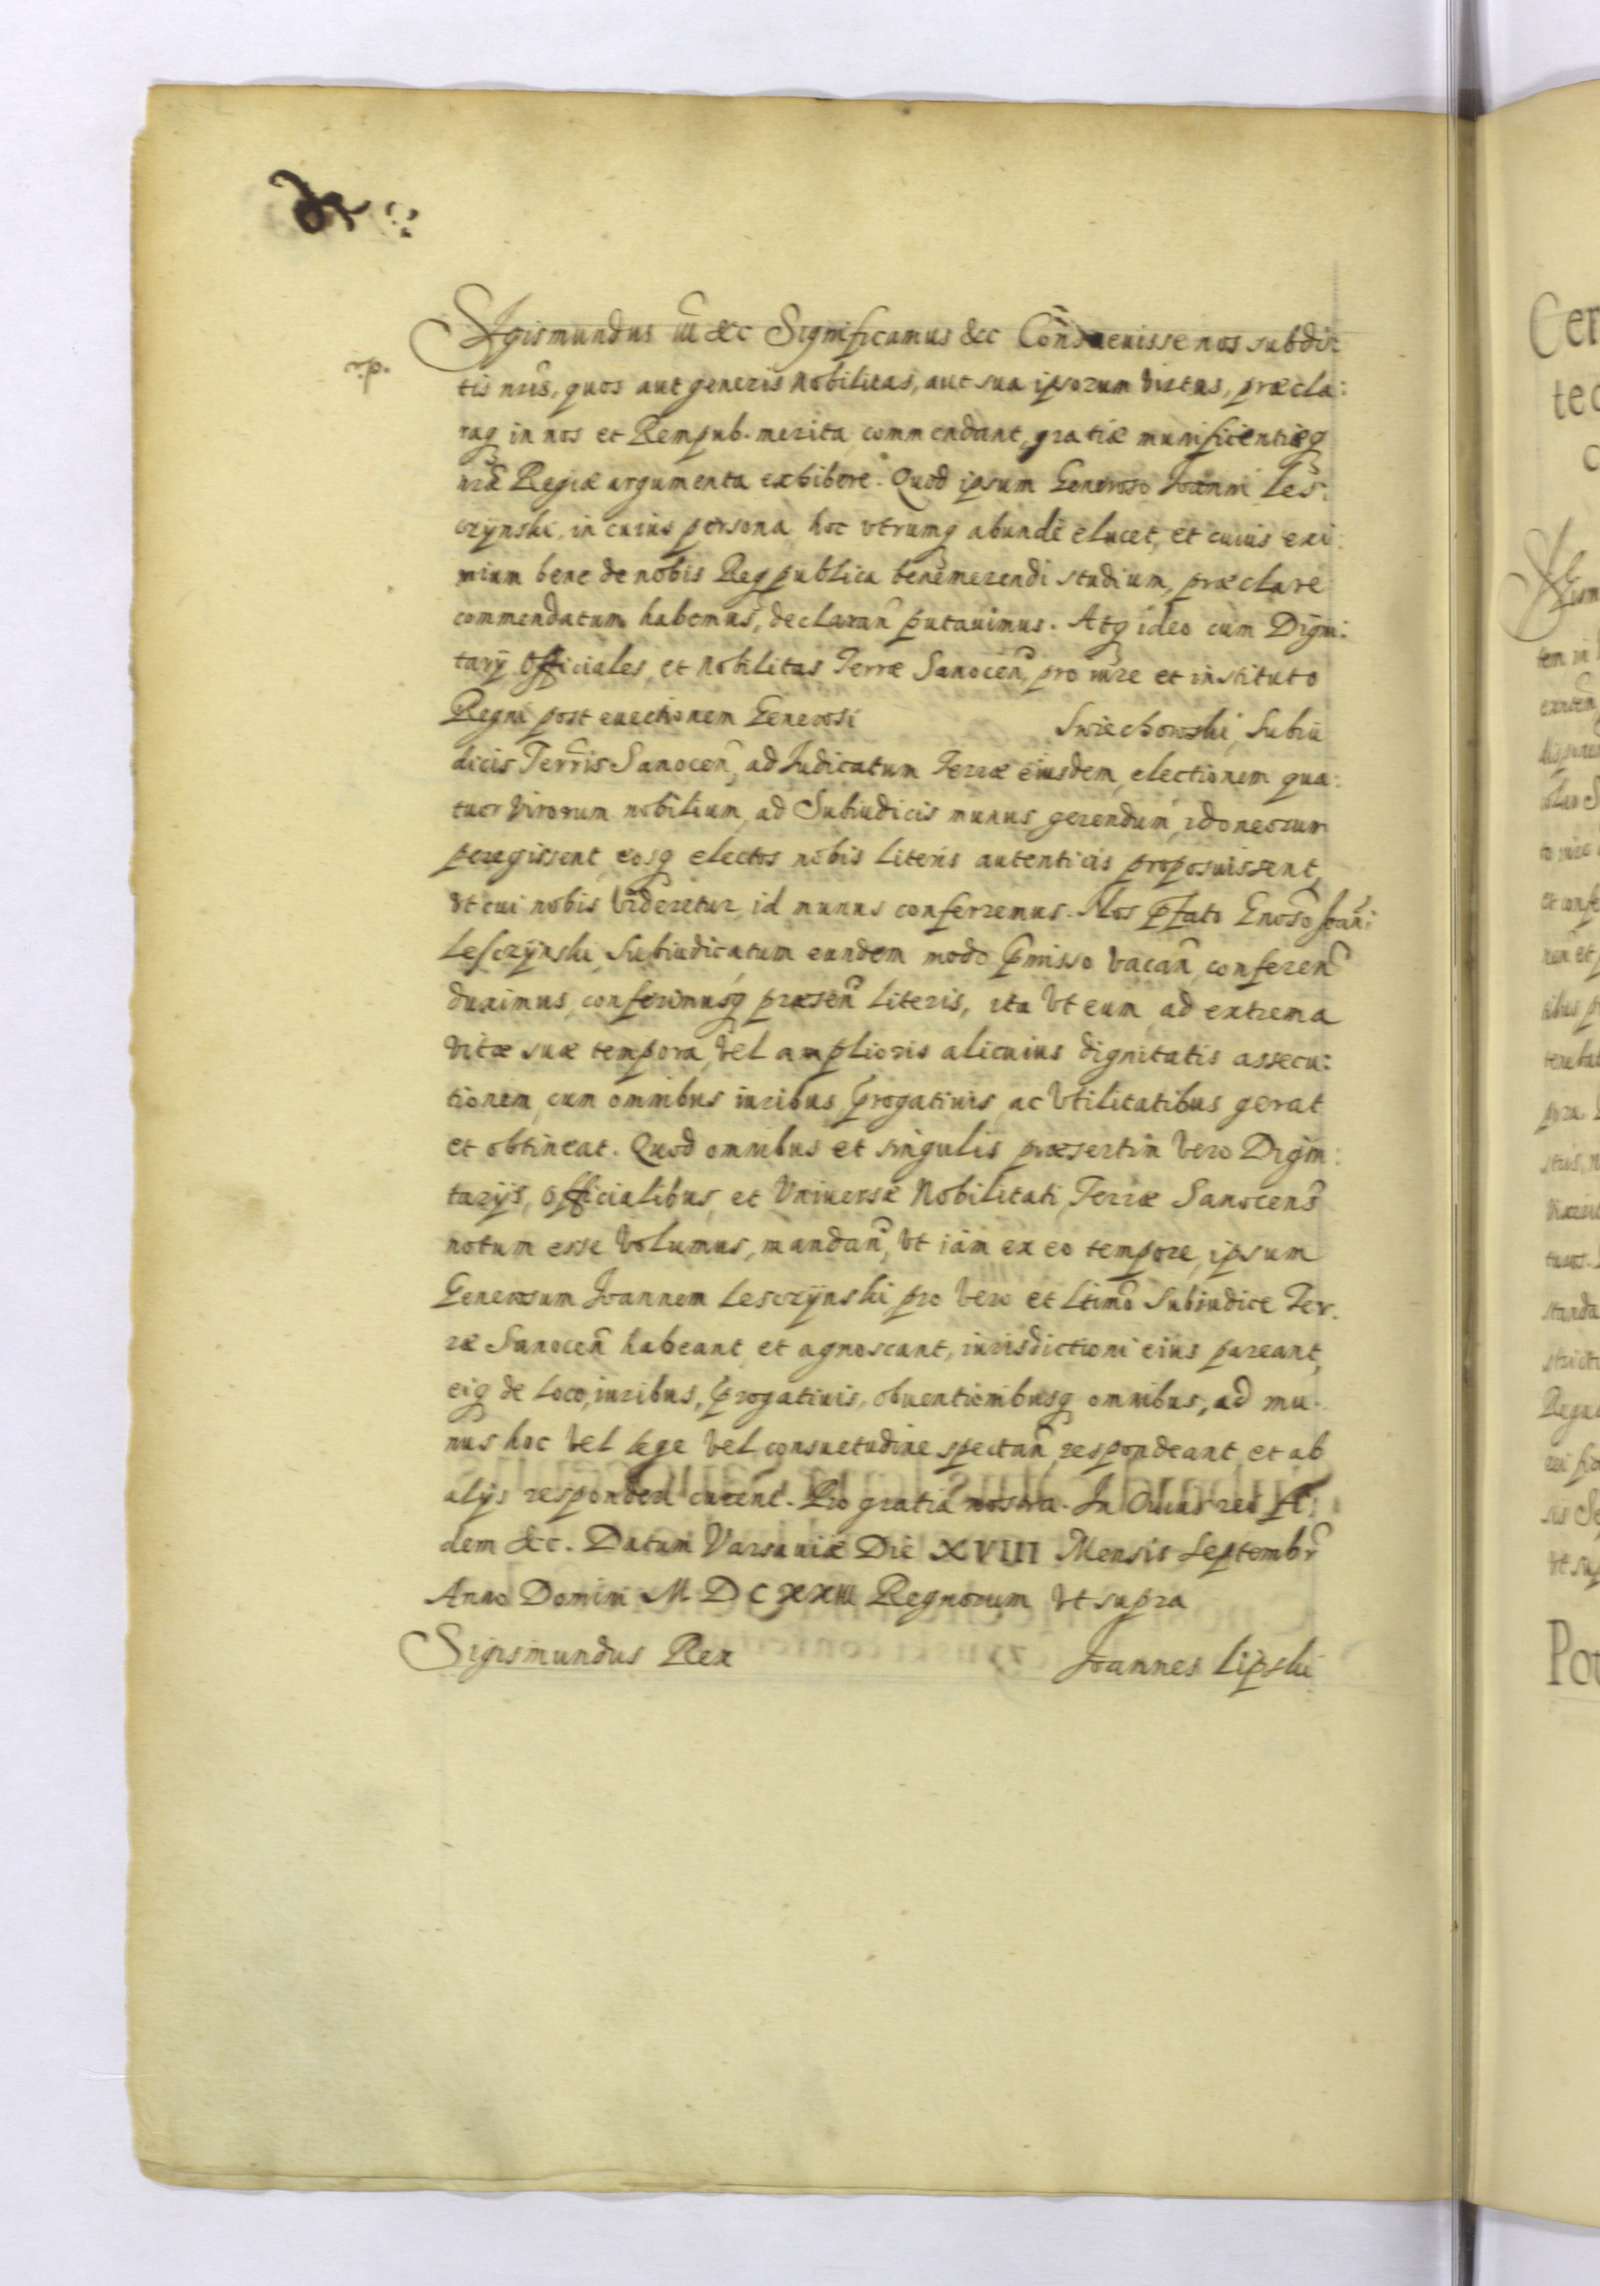 Sigismundus III &c Significamus &c Consueuisse nos subdi:
tis nr̃is, quos aut generis Nobilitas, aut sua ipsorum virtus, præcla:
raq in nos et Rempub. merita commendant, gratiæ munificentiæq
nr̃æ Regiæ argumenta exhibere. Quod ipsum Generoso Joanni Les:
czÿnski, in cuius persona hoc vtrumq abunde elucet, et cuius exi:
mium bene de nobis Reqpublica benemerendi studium, præclare
commendatum habemus, declaran̄ putauimus. Atq ideo cum Digni:
tarÿ Officiales, et Nobilitas Terræ Sanocen̄, pro iure et instituto
Regni post euectionem Generosi Swiechowski, Subiu
dicis Terris Sanocen̄, ad Iudicatum Terræ eiusdem, electionem qua:
tuor Virorum nobilium, ad Subiudicis munus gerendum, idoneorum
peregissent, eosq electos nobis literis autenticis proposuissent,
Vt cui nobis Videretur, id munus conferremus. Nos p̄fato Gnoso Joani
Lesczÿnski, Subiudicatum eundem modo p̄misso Vacan̄, conferen̄
duximus, conferimusq præsen̄ literis, ita Vt eum ad extrema
Vitæ suæ tempora, Vel amplioris alicuius dignitatis assecu:
tionem, cum omnibus iuribus, p̄rogatiuis, ac Vtilitatibus gerat
et obtineat. Quod omnibus et singulis præsertim Vero Digni:
tarÿs, Officialibus, et Vniuersæ Nobilitati Terræ Sanocens̄
notum esse Volumus, mandan̄, Vt iam ex eo tempore, ipsum
Generosum Joannem Lesczÿnski pro Vero et Ltimo Subiudice Ter.
ræ Sanocen̄ habeant et agnoscant, iurisdictioni eius pareant,
eiq de loco, iuribus, p̄rogatiuis, obuentionibusq omnibus, ad mu.
nus hoc Vel lege Vel consuetudine spectan̄, respondeant, et ab
alÿs responderi curent. Pro gratia nostra. In Cuius rei fi:
dem &c. Datum Varsauiæ Die XVIII Mensis Septembr̄
Anno Domini M D C XXIII Regnorum Vt supra
Sigismundus Rex Joannes Lipski